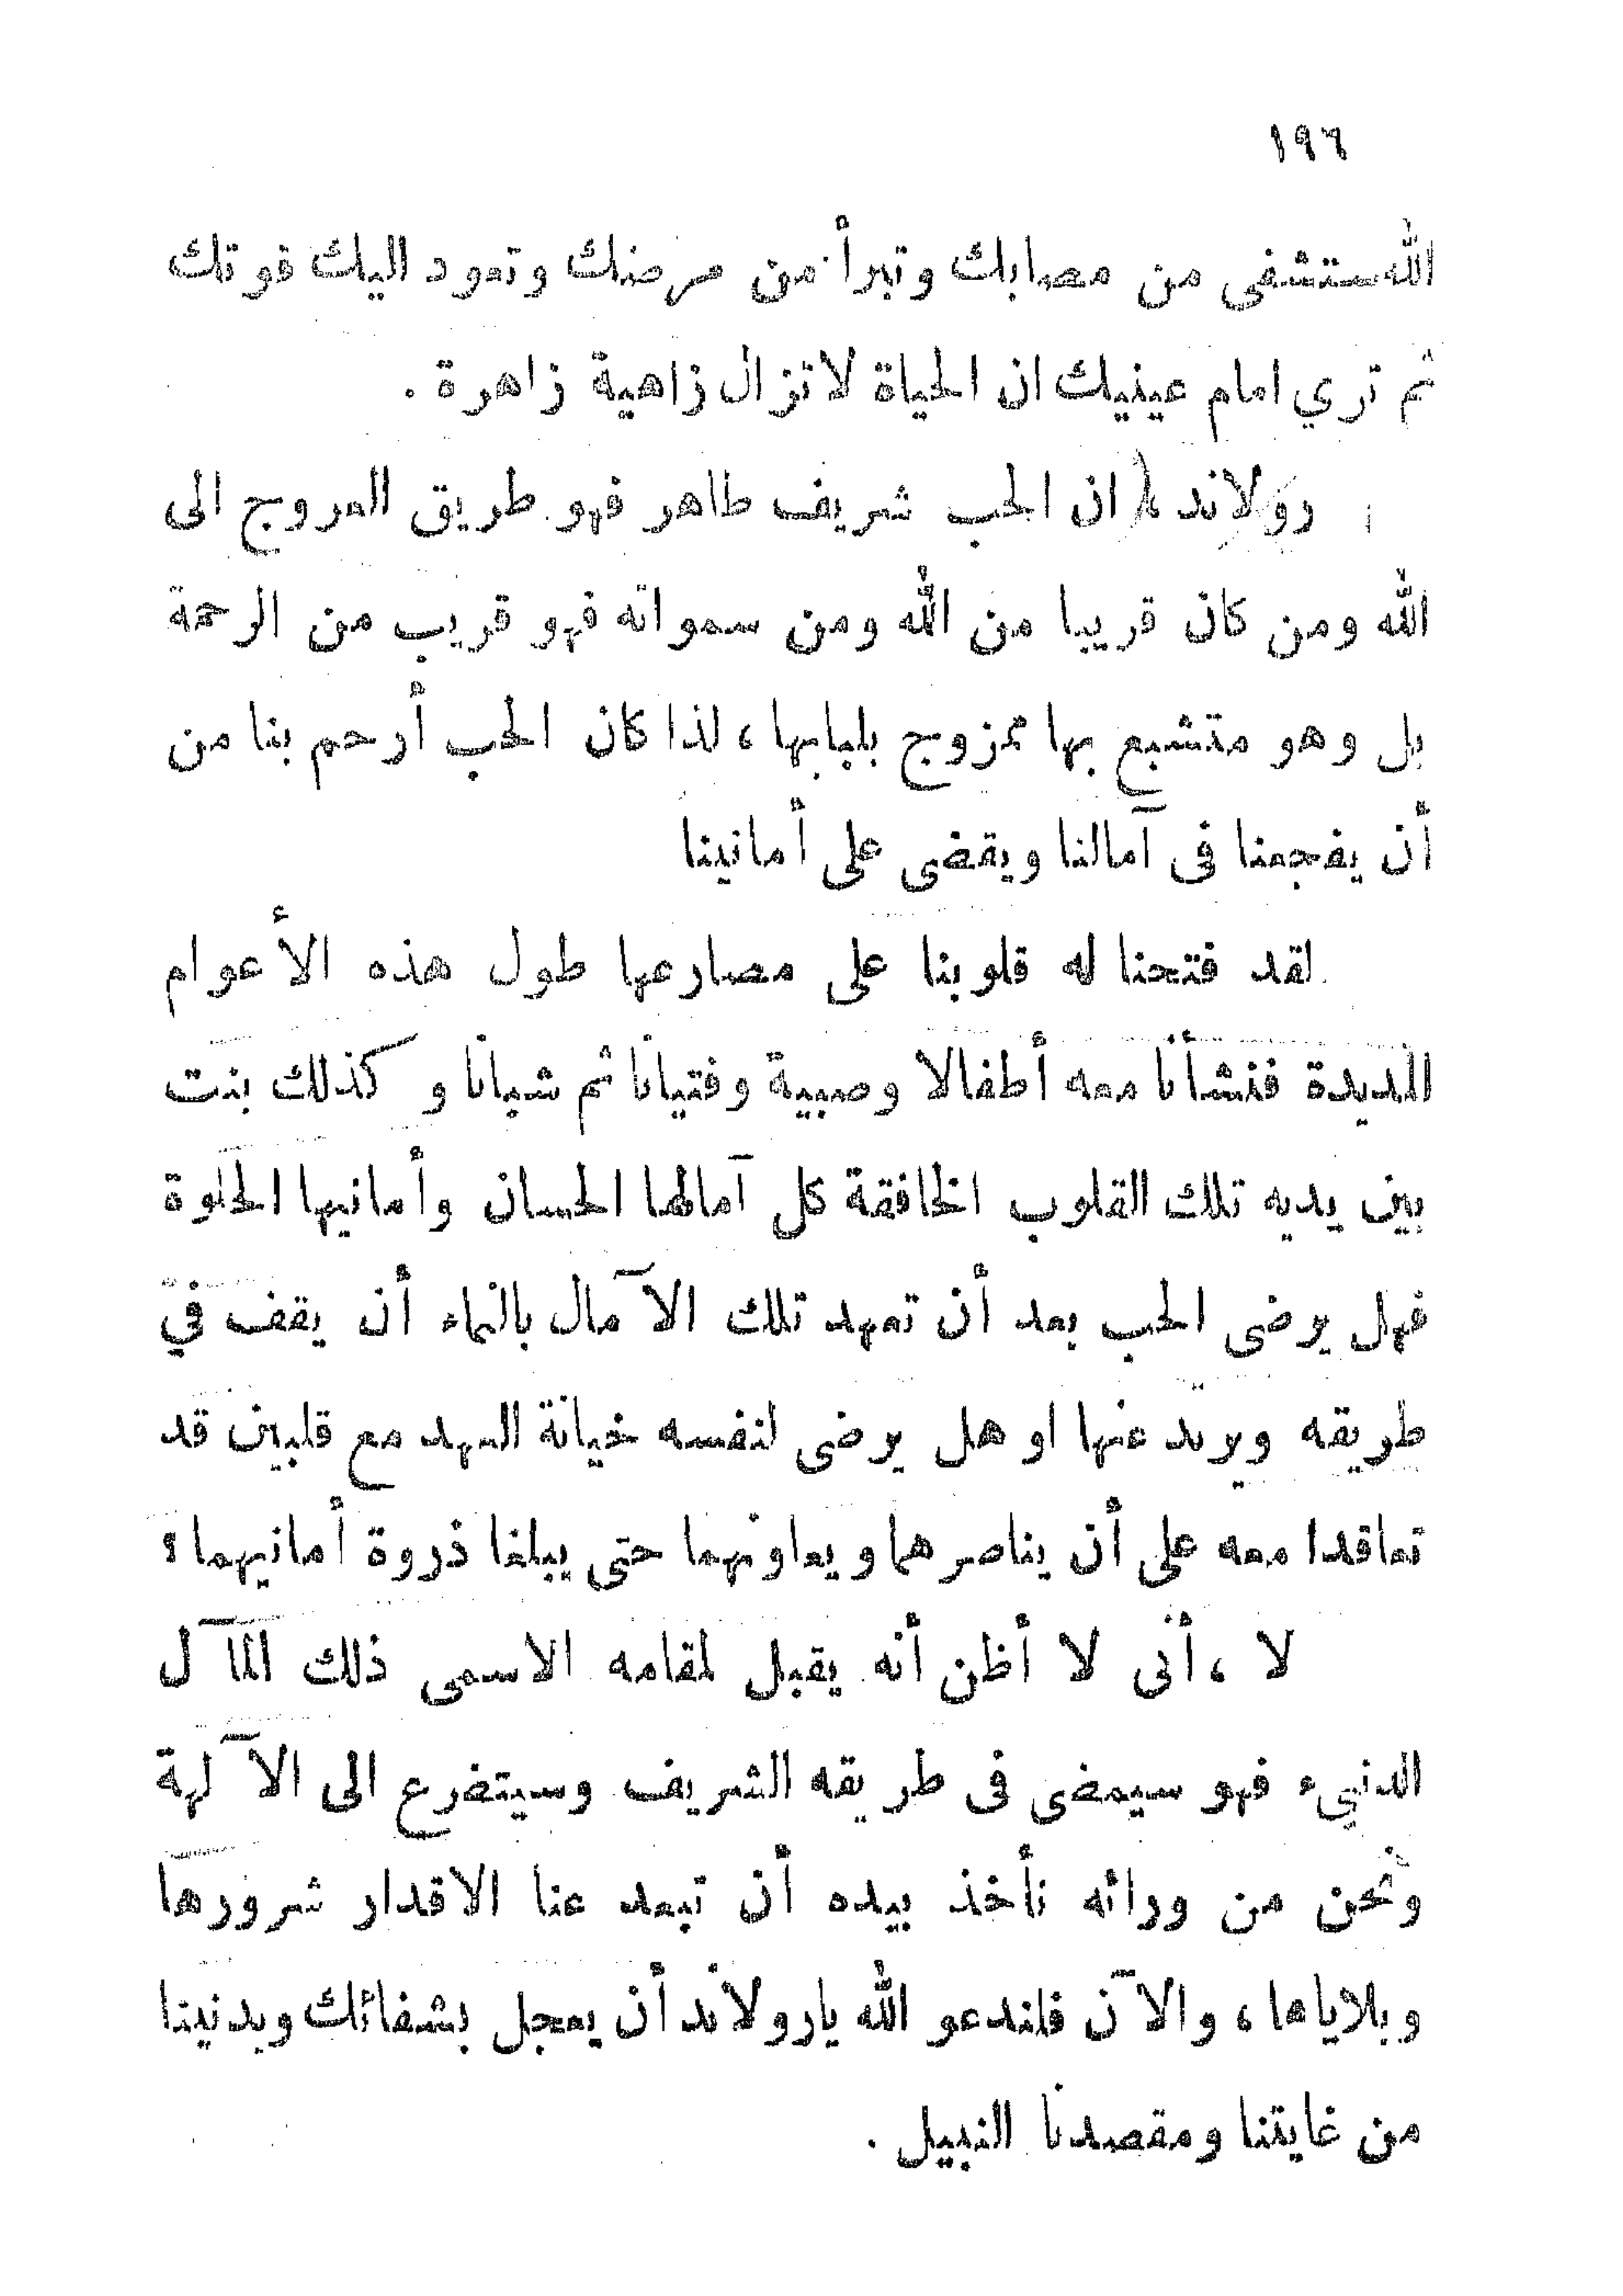 ١٩٦
الله ستشفى من مصابك وتبرأ من مرضك وتعود اليك قوتك
ثم تري امام عينيك ان الحياة لا تزال زاهية زاهرة .
رولاند ! ان الحب شريف طاهر فهو طريق العروج الى
الله ومن كان قريبا من الله ومن سمواته فهو قريب من الرحمة
بل وهو متشبع بها ممزوج بلبابها ، لذا كان الحب أرحم بنا من
أن يفجعنا فى آمالنا ويقضى على أمانينا
لقد فتحنا له قلوبنا على مصارعها طول هذه الأعوام
المديدة فنشأنا معه أطفالا وصبية وفتيانا ثم شبانا و كذلك بنت
بين يديه تلك القلوب الخافقة كل آمالها الحسان وأمانيها الحلوة
فهل يرضى الحب بعد أن تعهد تلك الآمال بالنماء أن يقف في
طريقه ويرتد عنها او هل يرضى لنفسه خيانة العهد مع قلبين قد
تعاقدا معه على أن يناصرهما ويعاونهما حتى يبلغا ذروة أمانيهما ؟
لا ، أنى لا أظن أنه يقبل لمقامه الاسمى ذلك المآل
الدنيء فهو سيمضى فى طريقه الشريف وسيتضرع الى الآلهة
ونحن من ورائه نأخذ بيده أن تبعد عنا الاقدار شرورها
وبلاياها ، والآن فلندعو الله يارولاند أن يعجل بشفائك ويدنينا
من غايتنا ومقصدنا النبيل .